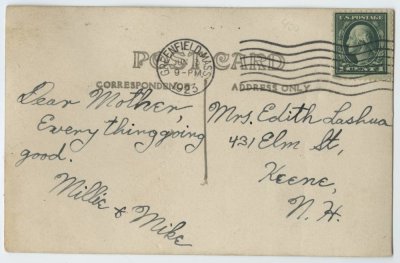 POST CARD
GREENFIELD, MASS.
9-PM
1923
U.S. POSTAGE
1 CENT 1
CORRESPONDENCE
ADDRESS ONLY
Dear Mother,
Every thing going
good.
Millie & Mike
Mrs. Edith Lashua
431 Elm St,
Keene,
N. H.